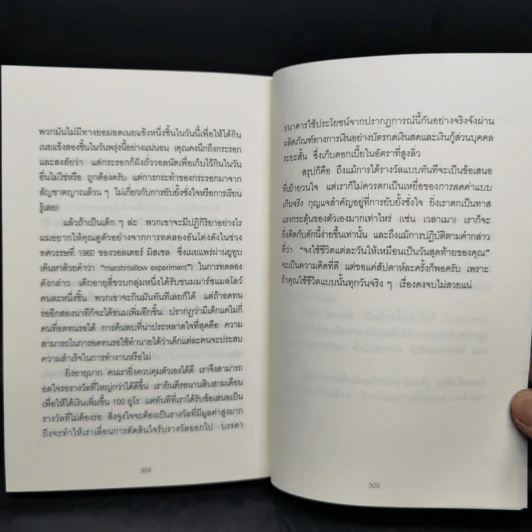 พวกมันไม่มีทางยอมอดเนยแข็งหนึ่งชิ้นในวันนี้เพื่อให้ได้กิน
เนยแข็งสองชิ้นในวันพรุ่งนี้อย่างแน่นอน (คุณคงนึกถึงกระรอก
และสงสัยว่า แต่กระรอกก็ฝังถั่ววอลนัตเพื่อเก็บไว้กินในวัน
อื่นไม่ใช่หรือ ถูกต้องครับ แต่การกระทำของกระรอกมาจาก
สัญชาตญาณล้วน ๆ ไม่เกี่ยวกับการยับยั้งชั่งใจหรือการเรียน
รู้เลย)
แล้วถ้าเป็นเด็ก ๆ ล่ะ พวกเขาจะมีปฏิกิริยาอย่างไร
ผมอยากให้คุณดูตัวอย่างจากการทดลองอันโด่งดังในช่วง
ทศวรรษที่ 1960 ของวอลเตอร์ มิสเชล ซึ่งเผยแพร่ผ่านยูทูบ
(ค้นหาด้วยคำว่า "marshmallow experiment") ในการทดลอง
ดังกล่าว เด็กอายุสี่ขวบกลุ่มหนึ่งได้รับขนมมาร์ชแมลโลว์
คนละหนึ่งชิ้น พวกเขาจะกินมันทันทีเลยก็ได้ แต่ถ้าอดทน
รออีกสองนาทีก็จะได้ขนมเพิ่มอีกชิ้น ปรากฏว่ามีเด็กแค่ไม่กี่
คนที่อดทนรอได้ การค้นพบที่น่าประหลาดใจที่สุดคือ ความ
สามารถในการอดทนรอใช้ทำนายได้ว่าเด็กแต่ละคนจะประสบ
ความสำเร็จในการทำงานหรือไม่
ยิ่งอายุมาก คนเรายิ่งควบคุมตัวเองได้ดี เราจึงสามารถ
อดใจรอรางวัลที่ใหญ่กว่าได้ดีขึ้น เรายินดีรอนานสิบสามเดือน
เพื่อให้ได้เงินเพิ่มขึ้น 100 ยูโร แต่ทันทีที่เราได้รับข้อเสนอเป็น
รางวัลที่ไม่ต้องรอ สิ่งจูงใจจะต้องเป็นรางวัลที่มีมูลค่าสูงมาก
ถึงจะทำให้เราเลื่อนการตัดสินใจรับรางวัลออกไป บรรดา
304
ธนาคารใช้ประโยชน์จากปรากฏการณ์นี้กันอย่างจริงจังผ่าน
ผลิตภัณฑ์ทางการเงินอย่างบัตรกดเงินสดและเงินกู้ส่วนบุคคล
ระยะสั้น ซึ่งเก็บดอกเบี้ยในอัตราที่สูงลิ่ว
สรุปก็คือ ถึงแม้การได้รางวัลแบบทันทีจะเป็นข้อเสนอ
ที่เย้ายวนใจ แต่เราก็ไม่ควรตกเป็นเหยื่อของการลดค่าแบบ
เกินจริง กุญแจสำคัญอยู่ที่การยับยั้งชั่งใจ ยิ่งเราเป็นทาส
แรงกระตุ้นของตัวเองมากเท่าไหร่ (เช่น เวลาเมา) เราก็จะ
ยิ่งติดกับดักนี้ง่ายขึ้นเท่านั้น และถึงแม้การปฏิบัติตามคำกล่าว
ที่ว่า "จงใช้ชีวิตแต่ละวันให้เหมือนเป็นวันสุดท้ายของคุณ"
จะเป็นความคิดที่ดี แต่ขอแค่สัปดาห์ละครั้งก็พอครับ เพราะ
ถ้าคุณใช้ชีวิตแบบนั้นทุกวันจริง ๆ เรื่องคงจบไม่สวยแน่
305